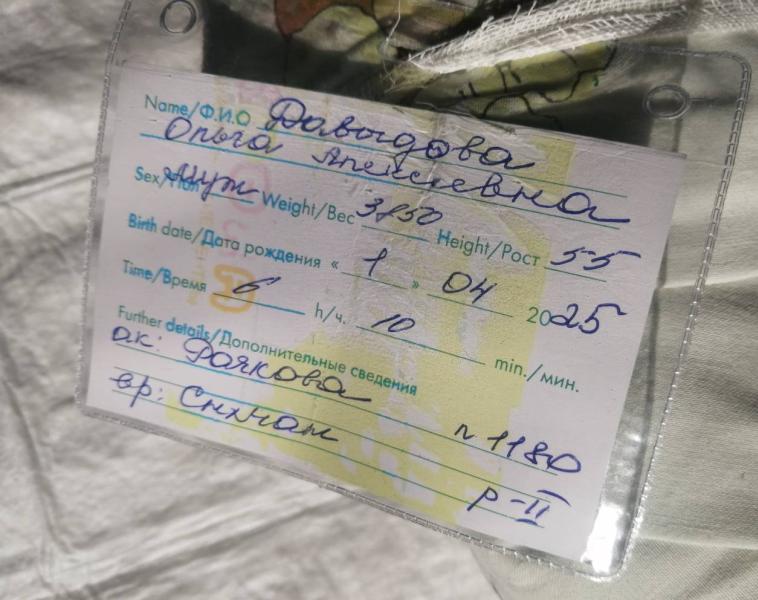 Name/Ф.И.О Давыдова
Ольга Алексеевна
Sex/Пол муж Weight/Вес 3850 Height/Рост 55
Birth date/Дата рождения « 1 » 04 2025
Time/Время 6 h/ч. 10 min./мин.
Further details/Дополнительные сведения
ак: Рачкова
вр: n 1180
р-II